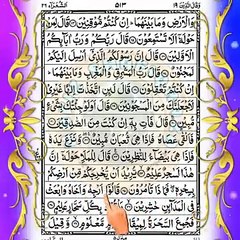 وَقَالَ الَّذِيْنَ ١٩ ٥١٣ الشُّعَرَآء ٢٦
وَالْاَرْضِ وَمَا بَيْنَهُمَا اِنْ كُنْتُمْ مُّوْقِنِيْنَ قَالَ لِمَنْ
حَوْلَهٗٓ اَلَا تَسْتَمِعُوْنَ قَالَ رَبُّكُمْ وَرَبُّ اٰبَآىِٕكُمُ
الْاَوَّلِيْنَ قَالَ اِنَّ رَسُوْلَكُمُ الَّذِيْٓ اُرْسِلَ اِلَيْكُمْ
لَمَجْنُوْنٌ قَالَ رَبُّ الْمَشْرِقِ وَالْمَغْرِبِ وَمَا بَيْنَهُمَا
اِنْ كُنْتُمْ تَعْقِلُوْنَ قَالَ لَىِٕنِ اتَّخَذْتَ اِلٰهًا غَيْرِيْ
لَاَجْعَلَنَّكَ مِنَ الْمَسْجُوْنِيْنَ قَالَ اَوَلَوْ جِئْتُكَ بِشَيْءٍ
مُّبِيْنٍ قَالَ فَاْتِ بِهٖٓ اِنْ كُنْتَ مِنَ الصّٰدِقِيْنَ
فَاَلْقٰى عَصَاهُ فَاِذَا هِيَ ثُعْبَانٌ مُّبِيْنٌ وَّنَزَعَ يَدَهٗ
فَاِذَا هِيَ بَيْضَآءُ لِلنّٰظِرِيْنَ قَالَ لِلْمَلَاِ حَوْلَهٗٓ اِنَّ
هٰذَا لَسٰحِرٌ عَلِيْمٌ يُّرِيْدُ اَنْ يُّخْرِجَكُمْ مِّنْ اَرْضِكُمْ
بِسِحْرِهٖ فَمَاذَا تَاْمُرُوْنَ قَالُوْٓا اَرْجِهْ وَاَخَاهُ وَابْعَثْ
فِي الْمَدَآىِٕنِ حٰشِرِيْنَ يَاْتُوْكَ بِكُلِّ سَحَّارٍ عَلِيْمٍ
فَجُمِعَ السَّحَرَةُ لِمِيْقَاتِ يَوْمٍ مَّعْلُوْمٍ وَّقِيْلَ